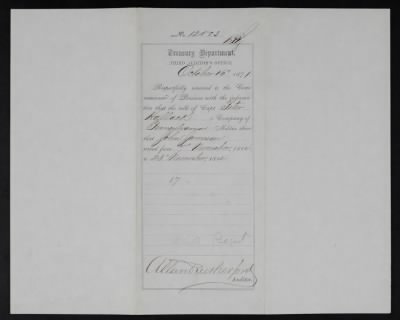 No. 12523
Treasury Department,
THIRD AUDITOR'S OFFICE,
October 16th 1871.
Respectfully returned to the Com-
missioner of Pensions with the informa-
tion that the roll of Capt. Peter
Company of
Pennsylvania Militia shows
that John
served from November, 1814
to 25 November, 1814
17
Allan Rutherford
Auditor.